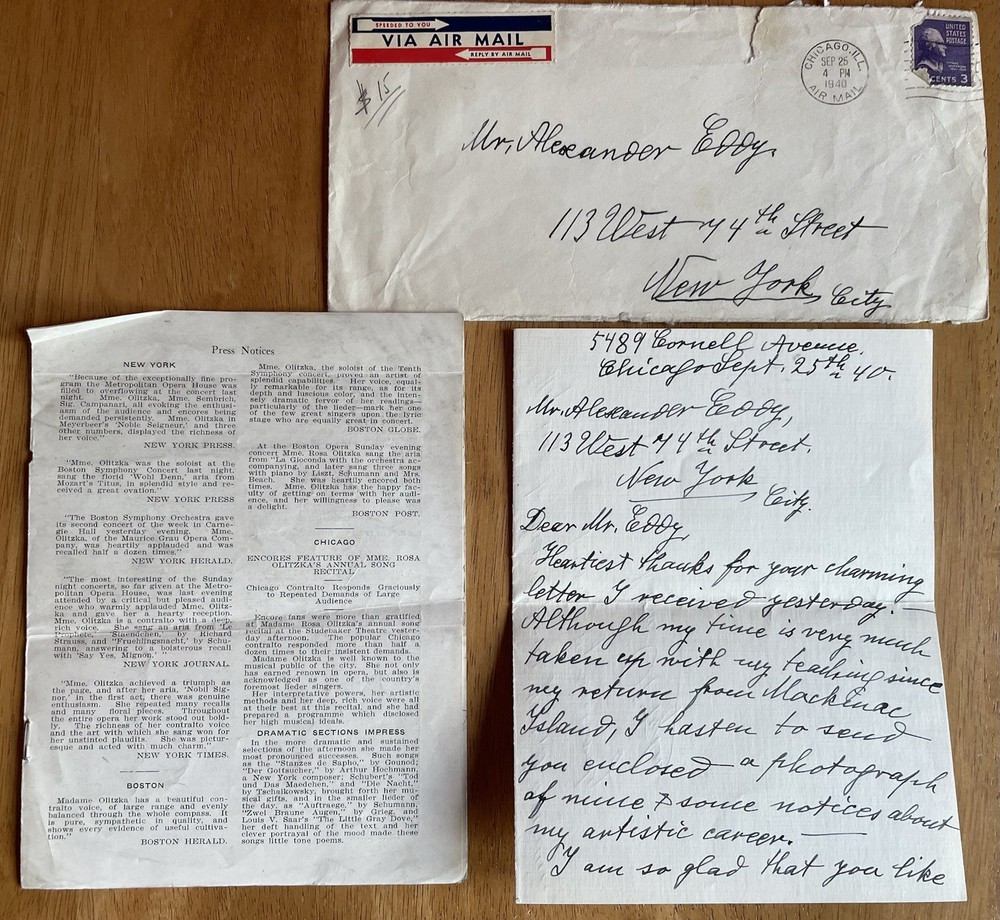 SPEEDED TO YOU
VIA AIR MAIL
REPLY BY AIR MAIL
$15
CHICAGO, ILL.
SEP 25
4 PM
1940
AIR MAIL
UNITED
STATES
POSTAGE
CENTS 3
Mr. Alexander Eddy.
113 West 74th Street
New York City
Press Notices
NEW YORK
"Because of the exceptionally fine pro-
gram the Metropolitan Opera House was
filled to overflowing at the concert last
night. Mme. Olitzka, Mme. Sembrich,
Sig. Campanari, all evoking the enthusi-
asm of the audience and encores being
demanded persistently. Mme. Olitzka in
Meyerbeer's 'Noble Seigneur,' and three
other numbers, displayed the richness of
her voice."
NEW YORK PRESS.
"Mme. Olitzka was the soloist at the
Boston Symphony Concert last night,
sang the florid 'Wohl Denn,' aria from
Mozart's Titus, in splendid style and re-
ceived a great ovation."
NEW YORK PRESS
"The Boston Symphony Orchestra gave
its second concert of the week in Carne-
gie Hall yesterday evening. Mme.
Olitzka, of the Maurice Grau Opera Com-
pany, was heartily applauded and was
recalled half a dozen times."
NEW YORK HERALD.
"The most interesting of the Sunday
night concerts, so far given at the Metro-
politan Opera House, was last evening
attended by a critical but pleased audi-
ence who warmly applauded Mme. Olitz-
ka and gave her a hearty reception.
Mme. Olitzka is a contralto with a deep,
rich voice. She sang an aria from 'Le
Prophete,' 'Staendchen,' by Richard
Strauss, and 'Fruehlingsnacht' by Schu-
mann, answering to a boisterous recall
with 'Say Yes, Mignon.' "
NEW YORK JOURNAL.
"Mme. Olitzka achieved a triumph as
the page, and after her aria, 'Nobil Sig-
nor,' in the first act, there was genuine
enthusiasm. She repeated many recalls and
many floral pieces. Throughout
the entire opera her work stood out bold-
ly. The richness of her contralto voice
and the art with which she sang won for
her unstinted plaudits. She was pictur-
esque and acted with much charm."
NEW YORK TIMES.
BOSTON
Madame Olitzka has a beautiful con-
tralto voice, of large range and evenly
balanced through the whole compass. It
is pure, sympathetic in quality, and
shows every evidence of useful cultiva-
tion."
BOSTON HERALD.
Mme. Olitzka, the soloist of the Tenth
Symphony concert, proved an artist of
splendid capabilities. Her voice, equal-
ly remarkable for its range, as for its
depth and luscious color, and the inten-
sely dramatic fervor of her readings—
particularly of the lieder—mark her one
of the few great singers upon the lyric
stage who are equally great in concert.
BOSTON GLOBE.
At the Boston Opera Sunday evening
concert Mme. Rosa Olitzka sang the aria
from "La Gioconda with the orchestra ac-
companying, and later sang three songs
with piano by Liszt, Schumann and Mrs.
Beach. She was heartily encored both
times. Mme. Olitzka has the happy fac-
ulty of getting on terms with her audi-
ence, and her willingness to please was
a delight.
BOSTON POST.
CHICAGO
ENCORES FEATURE OF MME. ROSA
OLITZKA'S ANNUAL SONG
RECITAL
Chicago Contralto Responds Graciously
to Repeated Demands of Large
Audience
Encore fans were more than gratified
at Madame Rosa Olitzka's annual song
recital at the Studebaker Theatre yester-
day afternoon. The popular Chicago
contralto responded more than half a
dozen times to their insistent demands.
Madame Olitzka is well known to the
musical public of the city. She not only
has earned renown in opera, but also is
acknowledged as one of the country's
foremost lieder singers.
Her interpretative powers, her artistic
methods and her deep, rich voice were all
at their best at this recital, and she had
prepared a programme which disclosed
her high musical ideals.
DRAMATIC SECTIONS IMPRESS
In the more dramatic and sustained
selections of the afternoon she made her
most pronounced successes. Such songs
as the "Stanzes de Sapho," by Gounod;
"Der Gottsucher," by Arthur Hochmann,
a New York composer; Schubert's "Tod
und Das Maedchen," and "Die Nacht,"
by Tschaikowsky, brought forth her mu-
sical gifts, and in the smaller lieder of
the day, as "Auftraege," by Schumann,
"Zwei Braune Augen," by Grieg, and
Louis V. Saar's "The Little Gray Dove,"
her deft handling of the text and her
clever portrayal of the mood made these
songs little tone poems.
5489 Cornell Avenue.
Chicago Sept. 25th 40.
Mr. Alexander Eddy,
113 West 74th Street.
New York
City.
Dear Mr. Eddy,
Heartiest thanks for your charming
letter I received yesterday. —
Although my time is very much
taken up with my teaching since
my return from Mackinac
Island, I hasten to send
you enclosed a photograph
of mine & some notices about
my artistic career. —
I am so glad that you like